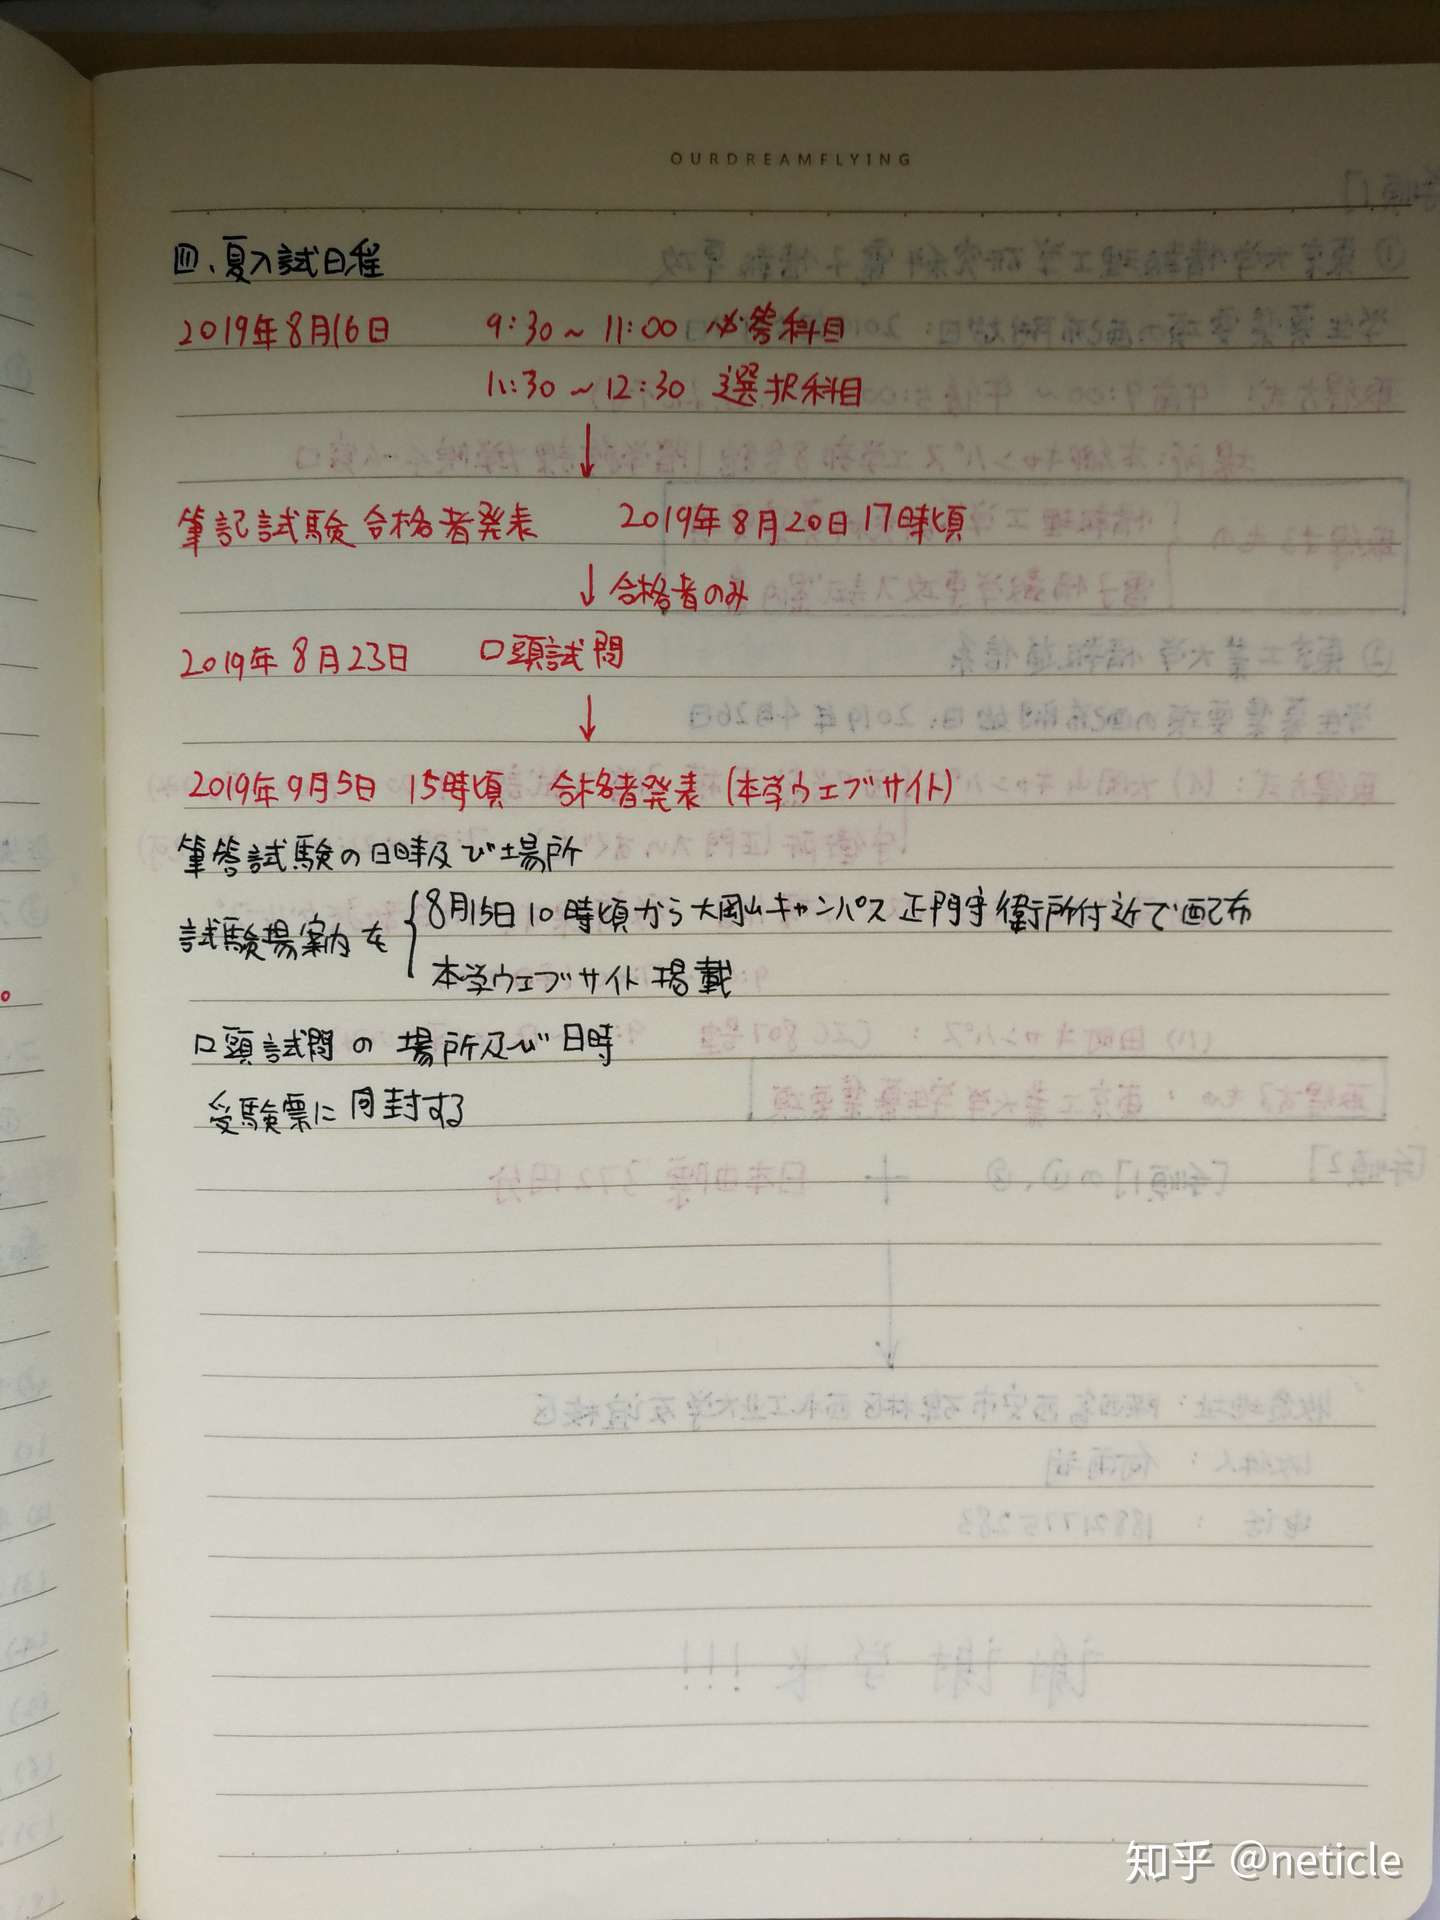 OURDREAMFLYING
四、夏入試日催
2019年8月16日 9:30~11:00 必答科目
11:30~12:30 選択科目
↓
筆記試験合格者発表 2019年8月20日17時頃
↓合格者のみ
2019年8月23日 口頭試問
↓
2019年9月5日 15時頃 合格者発表(本学ウェブサイト)
筆答試験の日時及び場所
試験場案内を{8月15日10時頃から大岡山キャンパス正門守衛所付近で配布
本学ウェブサイト掲載
口頭試問の場所及び日時
受験票に同封する
知乎 @neticle